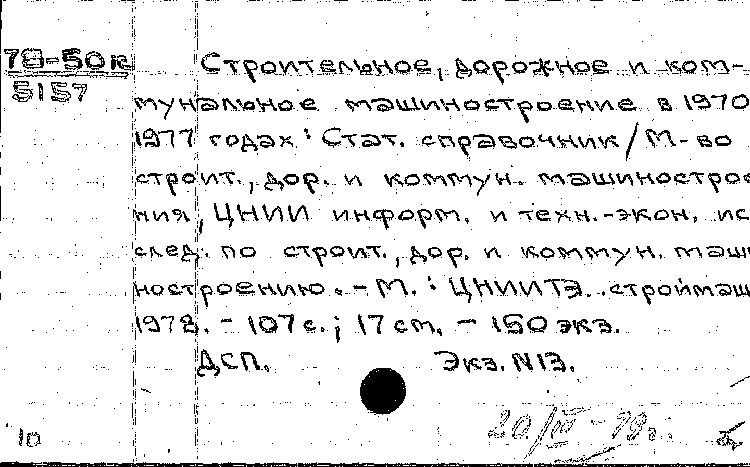 78-50к
5157
Строительное, дорожное и ком-
мунальное машиностроение в 1970
1977 годах : Стат. справочник / М-во
строит., дор. и коммун. машинострое
ния, ЦНИИ информ. и техн.-экон. ис
след. по строит., дор. и коммун. маши
ностроению. - М. : ЦНИИТЭ..строймаш
1978. - 107 с. ; 17 см. - 150 экз.
ДСП. Экз. N13.
10